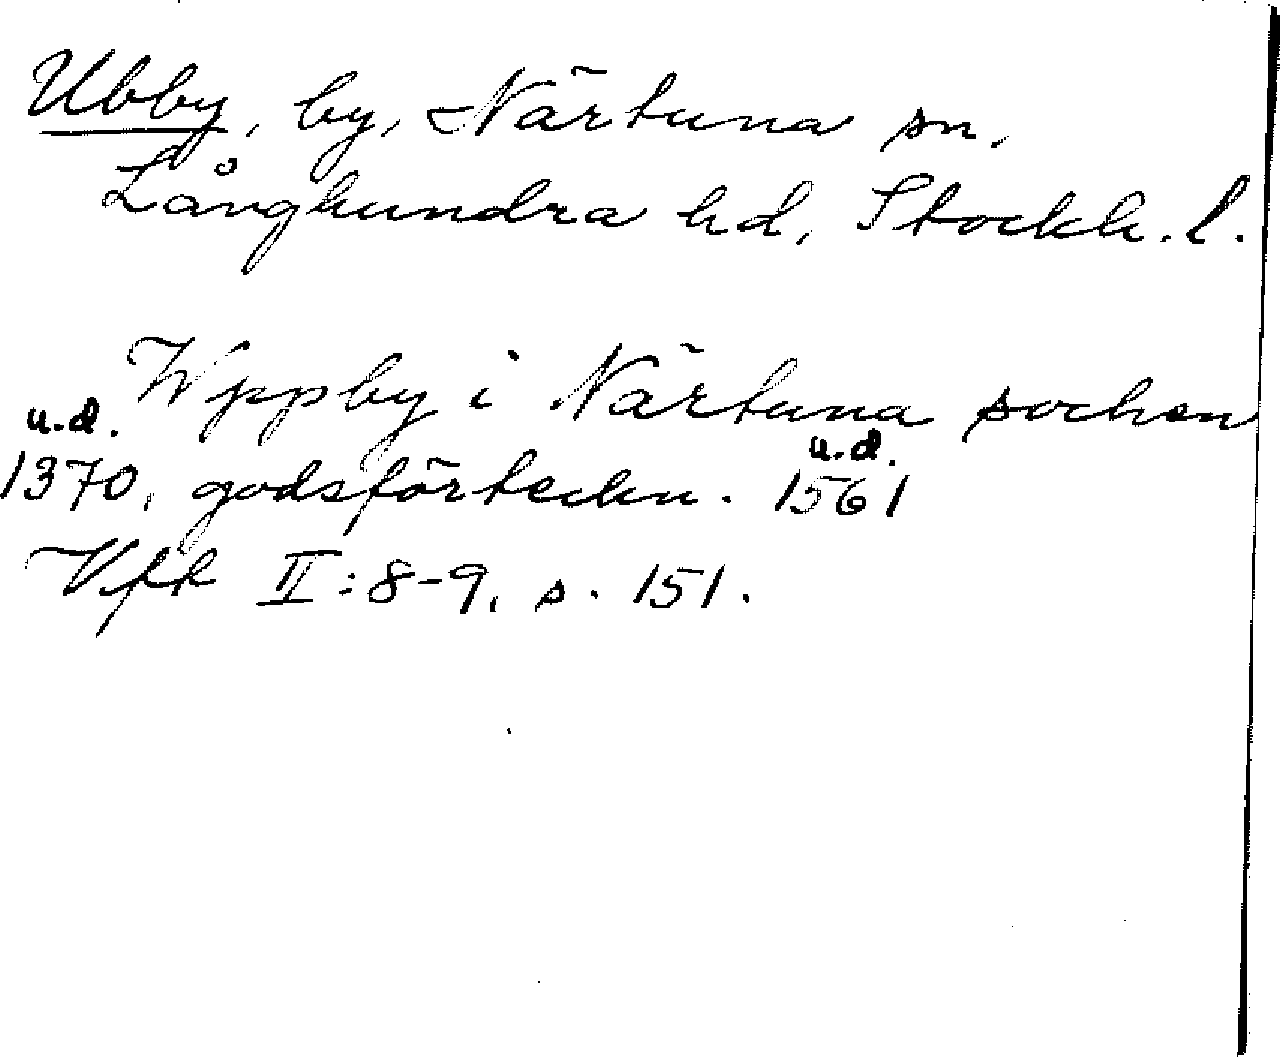 Ubby, by, Närtuna sn,
Långhundra hd, Stockh. l.
Wppby i Närtuna sochen
u.d. u.d.
1370, godsförteckn. 1561
Vfk II:8-9, s. 151.